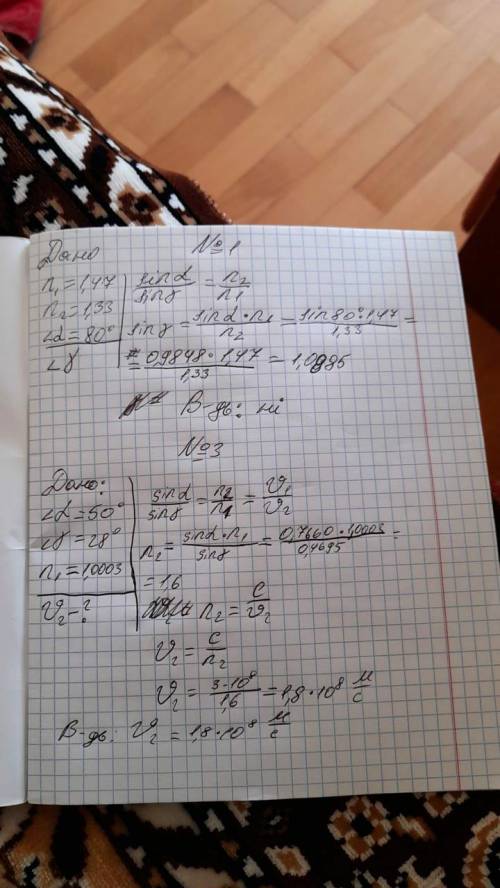 №1
Дано
n₁ = 1,47
n₂ = 1,33
∠α = 80°
∠γ
sinα/sinγ = n₂/n₁
sinγ = sinα·n₁/n₂ = sin80°·1,47/1,33 =
= 0,9848·1,47/1,33 = 1,0885
В-дь: ні
№3
Дано:
∠α = 50°
∠γ = 28°
n₁ = 1,0003
V₂ - ?
sinα/sinγ = n₂/n₁ = V₁/V₂
n₂ = sinα·n₁/sinγ = 0,7660·1,0003/0,4695 =
= 1,6
n₂ = c/V₂
V₂ = c/n₂
V₂ = 3·10⁸/1,6 = 1,8·10⁸ м/с
В-дь: V₂ = 1,8·10⁸ м/с